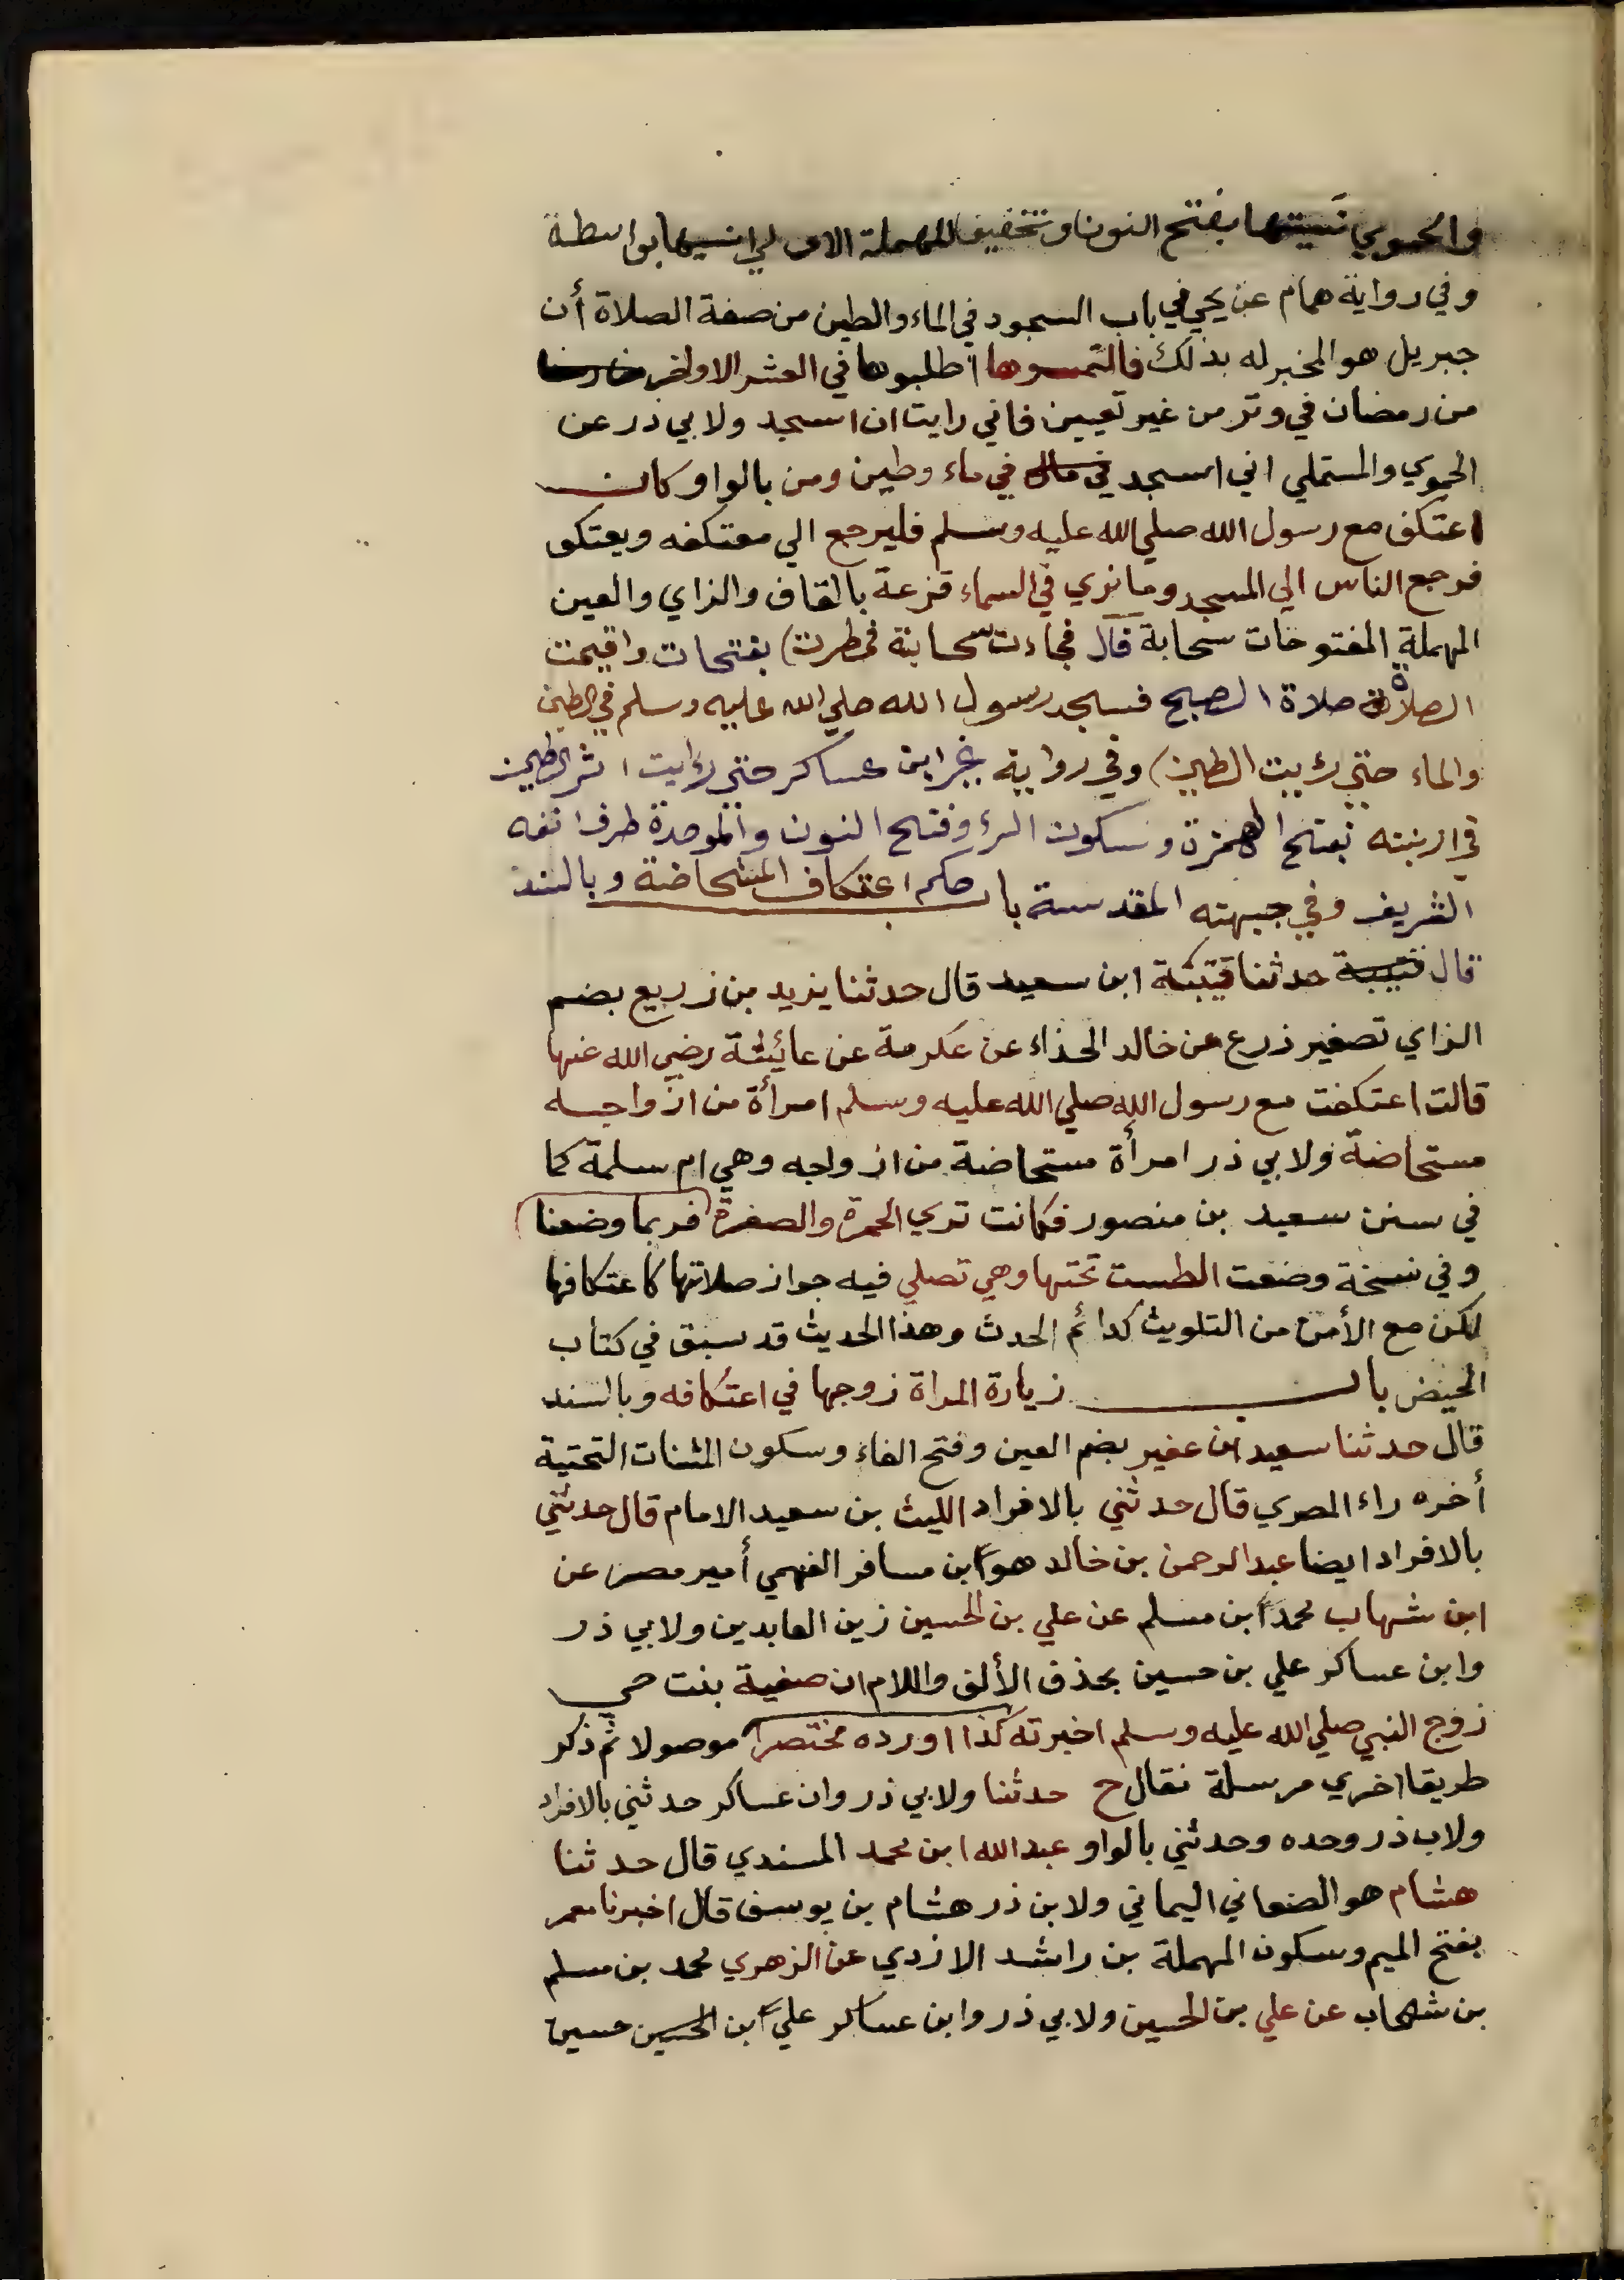 والحموي نَسيتها بفتح النون وتخفيف المهملة الاولي انسيها بواسطة
وفي رواية همام عن يحي في باب السجود في الماء والطين من صفة الصلاة أن
جبريل هو المخبر له بذلك فالتمسوها اطلبوها في العشر الاواخر
من رمضان في وتر من غير تعيين فاني رايت ان اسجد ولابي ذر عن
الحموي والمستملي اني اسجد في ماء وطين ومن بالواو كان
اعتكف مع رسول الله صلي الله عليه وسلم فليرجع الي معتكفه ويعتكف
فرجع الناس الي المسجد وما نري في السماء قزعة بالقاف والزاي والعين
المهملة المفتوحات سحابة قال فجاءت سحابة فمطرت) بفتحات واقيمت
الصلاة صلاة الصبح فسجد رسول الله صلي الله عليه وسلم في الطين
والماء حتي رئيت الطين) وفي رواية غير ابن عساكر حتي رايت اثر الطين
في ارنبته بفتح الهمزة وسكون الرء وفتح النون والموحدة طرف انفه
الشريف وفي جبهته المقدسة باب حكم اعتكاف المستحاضة وبالسند
قال قتيبة حدثنا قتيبة ابن سعيد قال حدثنا يزيد بن زريع بضم
الزاي تصغير زرع عن خالد الحذاء عن عكرمة عن عائيشة رضي الله عنها
قالت اعتكفت مع رسول الله صلي الله عليه وسلم امرأة من ازواجه
مستحاضة ولابي ذر امرأة مستحاضة من ازواجه وهي ام سلمة كما
في سنن سعيد بن منصور فكانت تري الحمرة والصفرة فربما وضعنا)
وفي نسخة وضعت الطست تحتها وهي تصلي فيه جواز صلاتها كاعتكافها
لكن مع الأمن من التلويث كدائم الحدث وهذا الحديث قد سبق في كتاب
الحيض باب زيارة المراة زوجها في اعتكافه وبالسند
قال حدثنا سعيد ابن عفير بضم العين وفتح الفاء وسكون المثنات التحتية
أخره راء المصري قال حدثني بالافراد الليث بن سعيد الامام قال حدثني
بالافراد ايضا عبد الرحمن بن خالد هو ابن مسافر الفهمي أمير مصر عن
ابن شهاب محمد ابن مسلم عن علي بن الحسين زين العابدين ولابي ذر
وابن عساكر علي بن حسين بحذف الألف واللام ان صفية بنت حي
زوج النبي صلي الله عليه وسلم اخبرته كذا اورده مختصرا موصولا ثم ذكر
طريقا اخري مرسلة فقال ح حدثنا ولابي ذر وان عساكر حدثني بالافراد
ولاب ذر وحده وحدثني بالواو عبد الله ابن محمد المسندي قال حدثنا
هشام هو الصنعاني اليماني ولابن ذر هشام بن يوسف قال اخبرنا معمر
بفتح الميم وسكون المهملة بن راشد الازدي عن الزهري محمد بن مسلم
بن شهاب عن علي بن الحسين ولابي ذر وابن عساكر علي ابن الحسين حسين